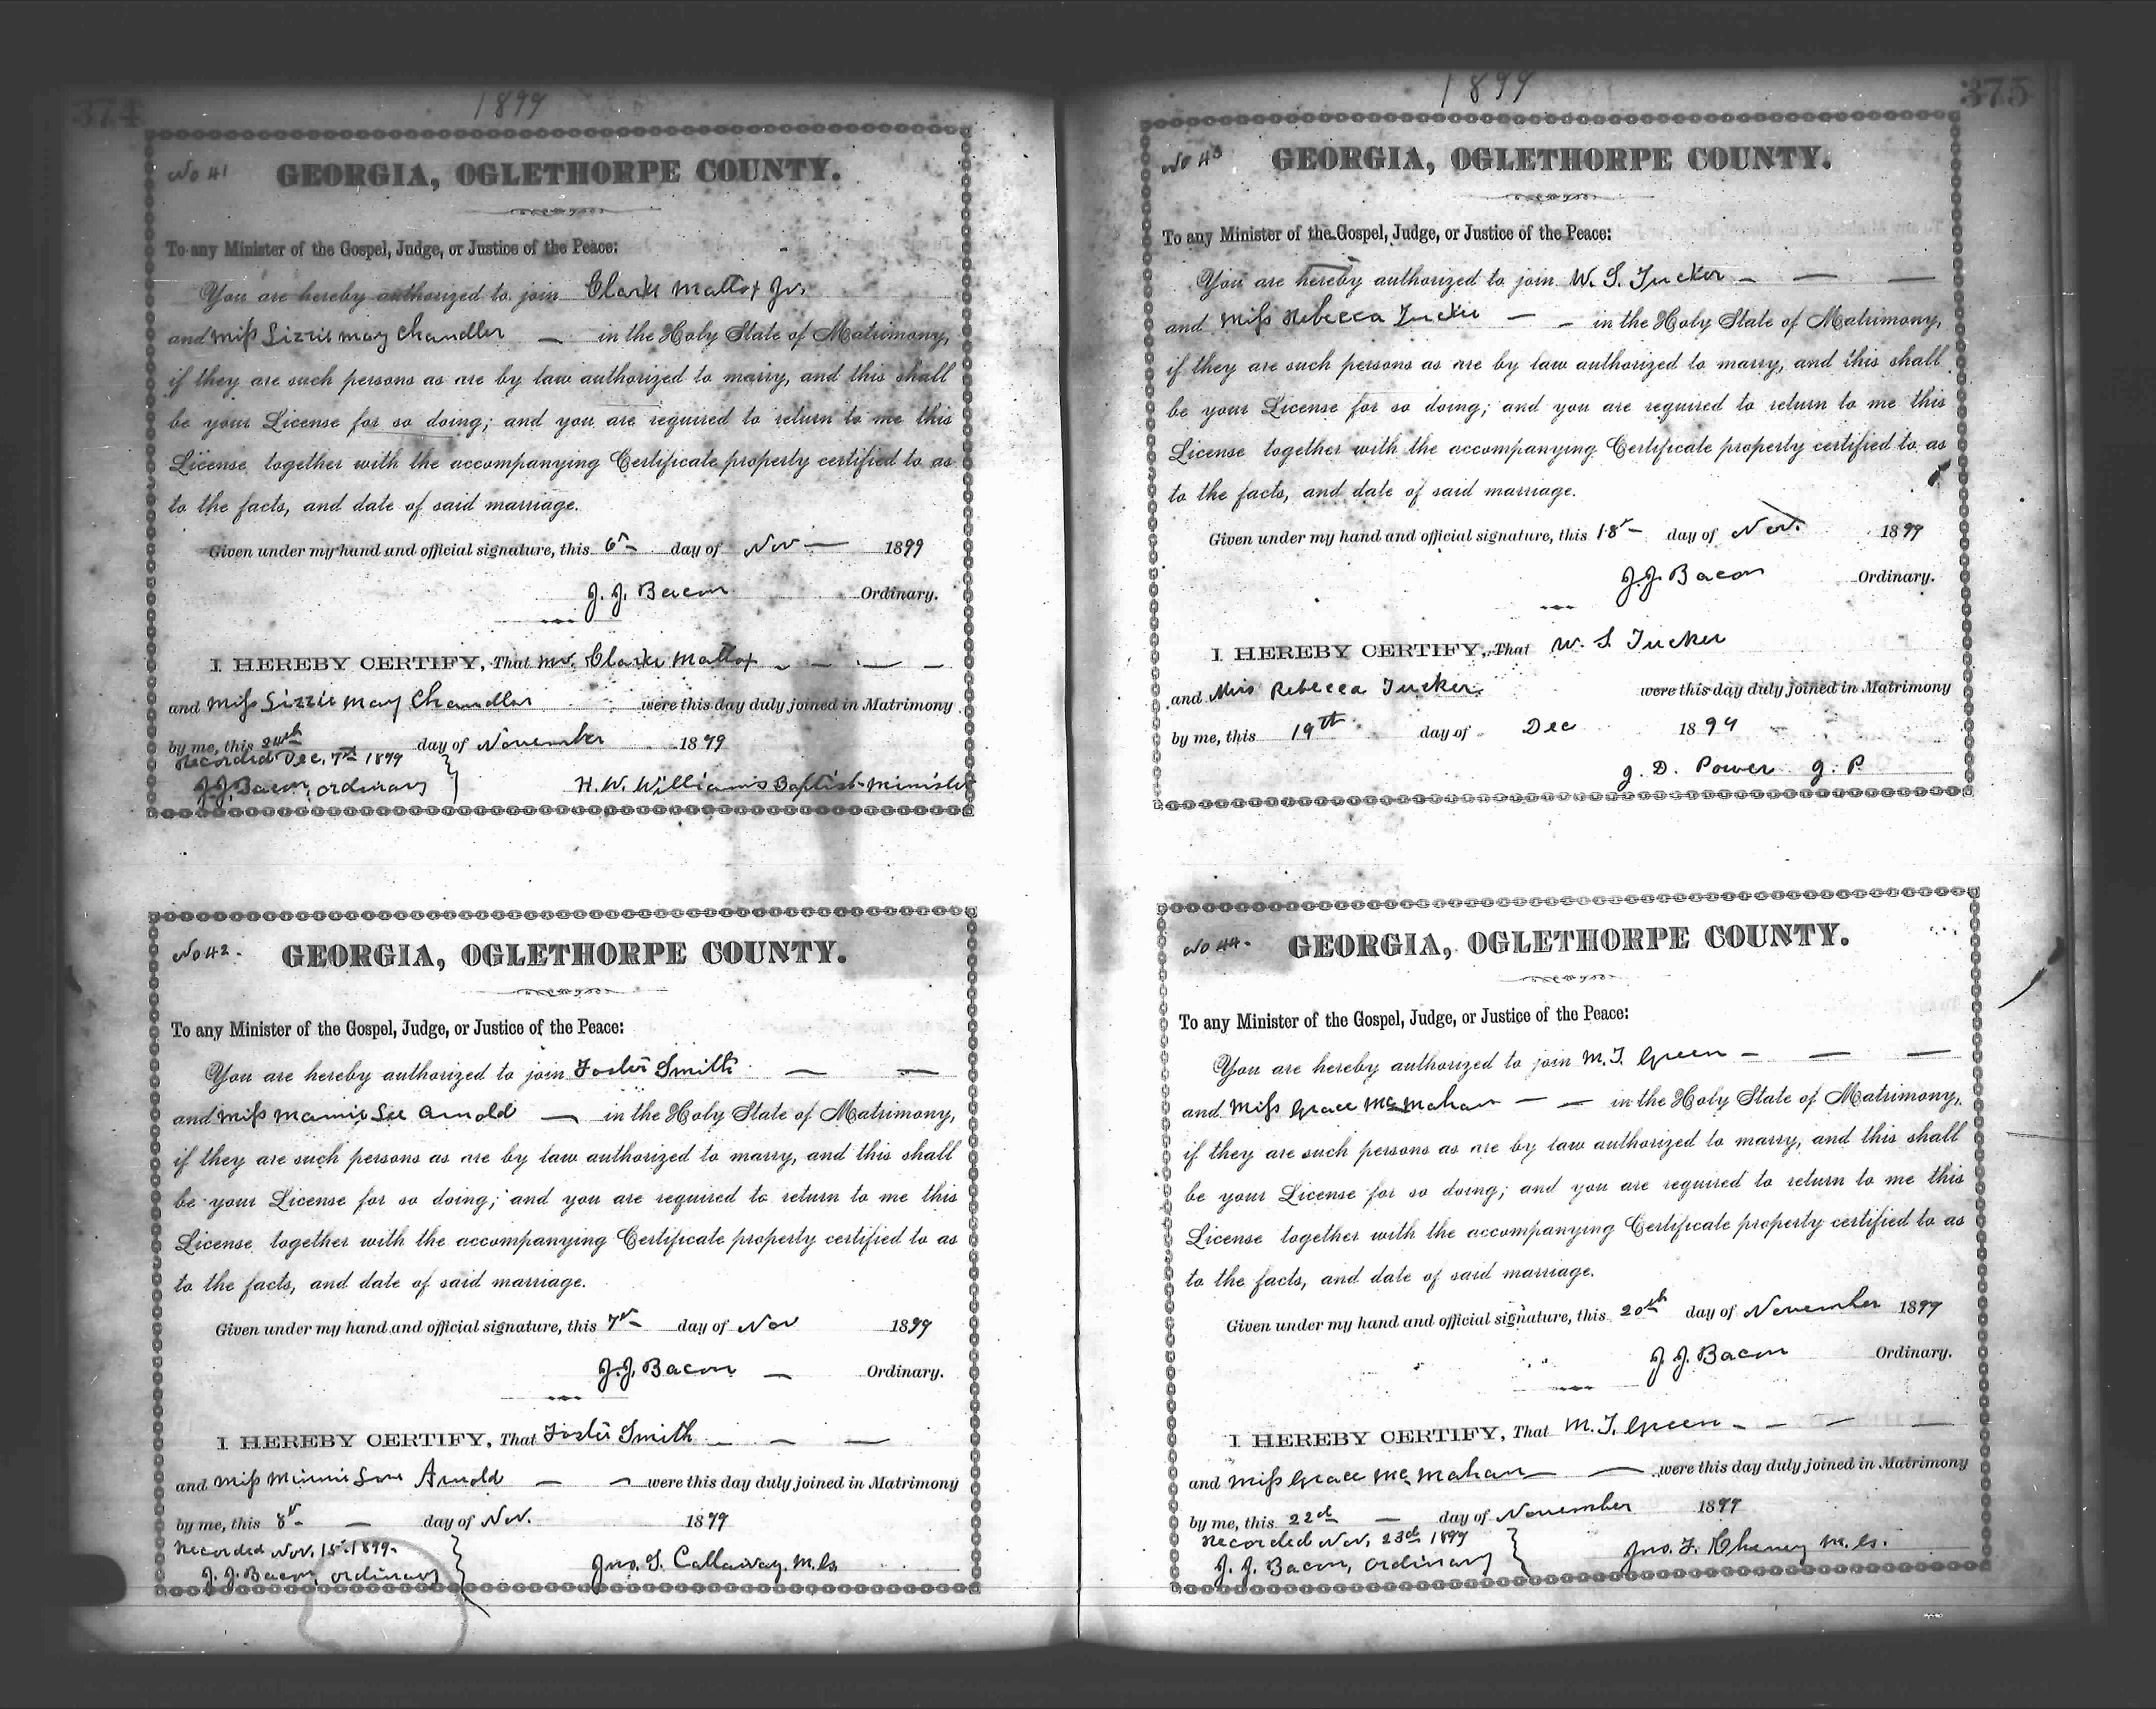 374
1899
No 41
GEORGIA, OGLETHORPE COUNTY.
To any Minister of the Gospel, Judge, or Justice of the Peace:
You are hereby authorized to join Clark Mattox Jr.
and Miss Lizzie May Chandler — in the Holy State of Matrimony,
if they are such persons as are by law authorized to marry, and this shall
be your License for so doing; and you are required to return to me this
License together with the accompanying Certificate property certified to as
to the facts, and date of said marriage.
Given under my hand and official signature, this 6th day of Nov — 1899
J. J. Bacon Ordinary.
I HEREBY CERTIFY, That Mr. Clarke Mattox — — — —
and Miss Lizzie May Chandler were this day duly joined in Matrimony
by me, this 24th day of November 1899
Recorded Dec. 7th 1899
J. J. Bacon, ordinary } H. W. Williams Baptist Minister
No 42.
GEORGIA, OGLETHORPE COUNTY.
To any Minister of the Gospel, Judge, or Justice of the Peace:
You are hereby authorized to join Foster Smith — —
and Miss Mamie Lee Arnold — in the Holy State of Matrimony,
if they are such persons as are by law authorized to marry, and this shall
be your License for so doing; and you are required to return to me this
License together with the accompanying Certificate property certified to as
to the facts, and date of said marriage.
Given under my hand and official signature, this 7th day of Nov 1899
J. J. Bacon — Ordinary.
I HEREBY CERTIFY, That Foster Smith — — —
and Miss Minnie Arnold — — were this day duly joined in Matrimony
by me, this 8th — day of Nov. 1899
Recorded Nov. 15th 1899.
J. J. Bacon, ordinary } Jno. S. Callaway, M.G.
375
1899
No 43
GEORGIA, OGLETHORPE COUNTY.
To any Minister of the Gospel, Judge, or Justice of the Peace:
You are hereby authorized to join W. S. Tucker — — —
and Miss Rebecca Tucker — — in the Holy State of Matrimony,
if they are such persons as are by law authorized to marry, and this shall
be your License for so doing; and you are required to return to me this
License together with the accompanying Certificate property certified to as
to the facts, and date of said marriage.
Given under my hand and official signature, this 18th day of Nov. 1899
J. J. Bacon Ordinary.
I HEREBY CERTIFY, That W. S. Tucker
and Miss Rebecca Tucker were this day duly joined in Matrimony
by me, this 19th day of Dec 1899
g. D. Power g. P.
No 44.
GEORGIA, OGLETHORPE COUNTY.
To any Minister of the Gospel, Judge, or Justice of the Peace:
You are hereby authorized to join M. T. Green — — —
and Miss Grace McMahan — — in the Holy State of Matrimony,
if they are such persons as are by law authorized to marry, and this shall
be your License for so doing; and you are required to return to me this
License together with the accompanying Certificate property certified to as
to the facts, and date of said marriage.
Given under my hand and official signature, this 20th day of November 1899
J. J. Bacon Ordinary.
I HEREBY CERTIFY, That M. T. Green — — — —
and Miss Grace McMahan — — were this day duly joined in Matrimony
by me, this 22d — day of November 1899
Recorded Nov. 23d 1899
J. J. Bacon, Ordinary } Jno. F. Cheney M.G.